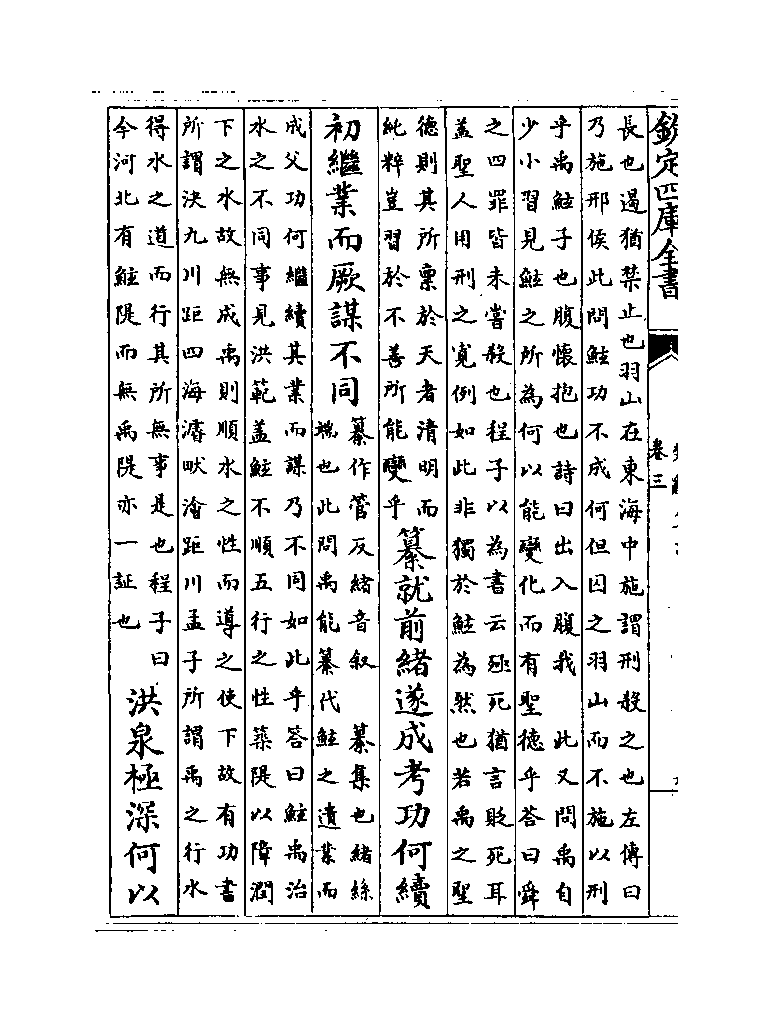 欽定四庫全書
卷三
長也遏猶禁止也羽山在東海中施謂刑殺之也左傳曰
乃施邢侯此問鮌功不成何但囚之羽山而不施以刑
乎禹鮌子也腹懷抱也詩曰出入腹我　此又問禹自
少小習見鮌之所為何以能變化而有聖德乎答曰舜
之四罪皆未嘗殺也程子以為書云殛死猶言貶死耳
蓋聖人用刑之寛例如此非獨於鮌為然也若禹之聖
德則其所稟於天者清明而
純粹豈習於不善所能變乎
纂就前緒遂成考功何續
初繼業而厥謀不同
纂作管反緒音叙　纂集也緒絲
端也此問禹能纂代鮌之遺業而
成父功何繼續其業而謀乃不同如此乎答曰鮌禹治
水之不同事見洪範蓋鮌不順五行之性築隄以障潤
下之水故無成禹則順水之性而導之使下故有功書
所謂決九川距四海濬畎澮距川孟子所謂禹之行水
得水之道而行其所無事是也程子曰
今河北有鮌隄而無禹隄亦一証也
洪泉極深何以